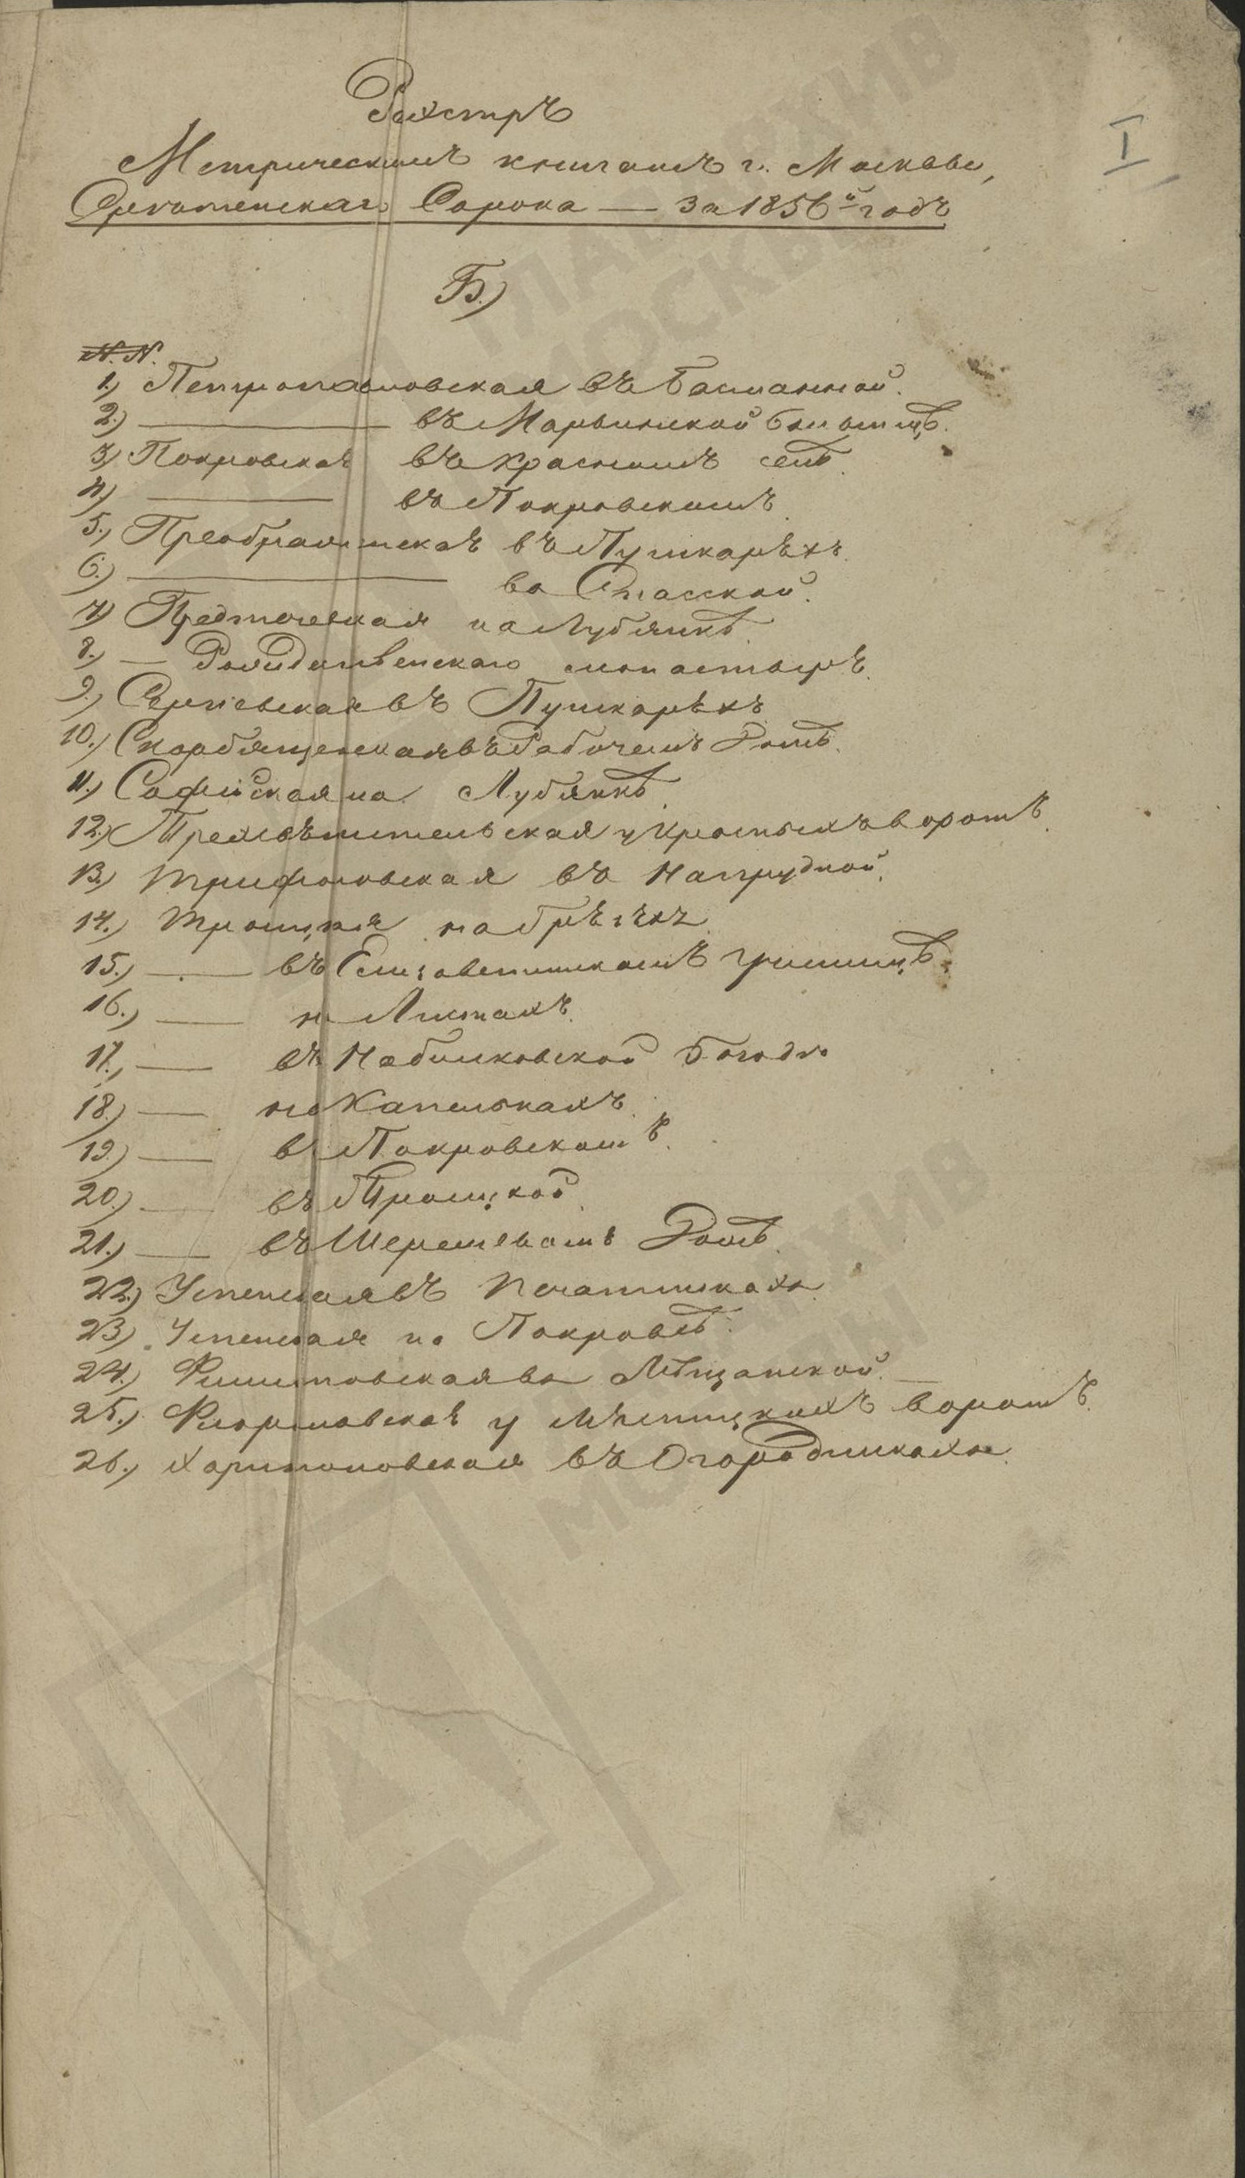 Реестръ
Метрическимъ книгамъ г. Москвы,
Срѣтенскаго Сорока — за 1856й годъ
I
Б.)
N. N.
1.) Петропавловская въ Басманной.
2.) ——— въ Марьинской больницѣ.
3.) Покровская въ Красномъ селѣ.
4.) ——— въ Покровскомъ.
5.) Преображенская въ Пушкаряхъ.
6.) ——— во Спасской.
7.) Предтеческая на Лубянкѣ.
8.) — Рождественскаго монастыря.
9.) Сергіевская въ Пушкаряхъ
10.) Скорбященская въ Рабочемъ Домѣ.
11.) Софійская на Лубянкѣ.
12.) Трехсвятительская у Красныхъ воротъ.
13.) Трифоновская въ Напрудной.
14.) Троицкая на
15.) — въ Елизаветинскомъ Училищѣ.
16.) — на Листахъ.
17.) — въ Набилковской Богодѣ
18.) — на Капелькахъ.
19.) — въ Покровскомъ.
20.) — въ Троицкой.
21.) — въ Шереметевомъ Домѣ.
22.) Успенская въ Печатникахъ
23.) Успенская на Покровкѣ.
24.) Филиповская въ Мѣщанской.
25.) Флоровская у Мясницкихъ воротъ.
26.) Харитоновская въ Огородникахъ.
ГЛАВАРХИВ
МОСКВЫ